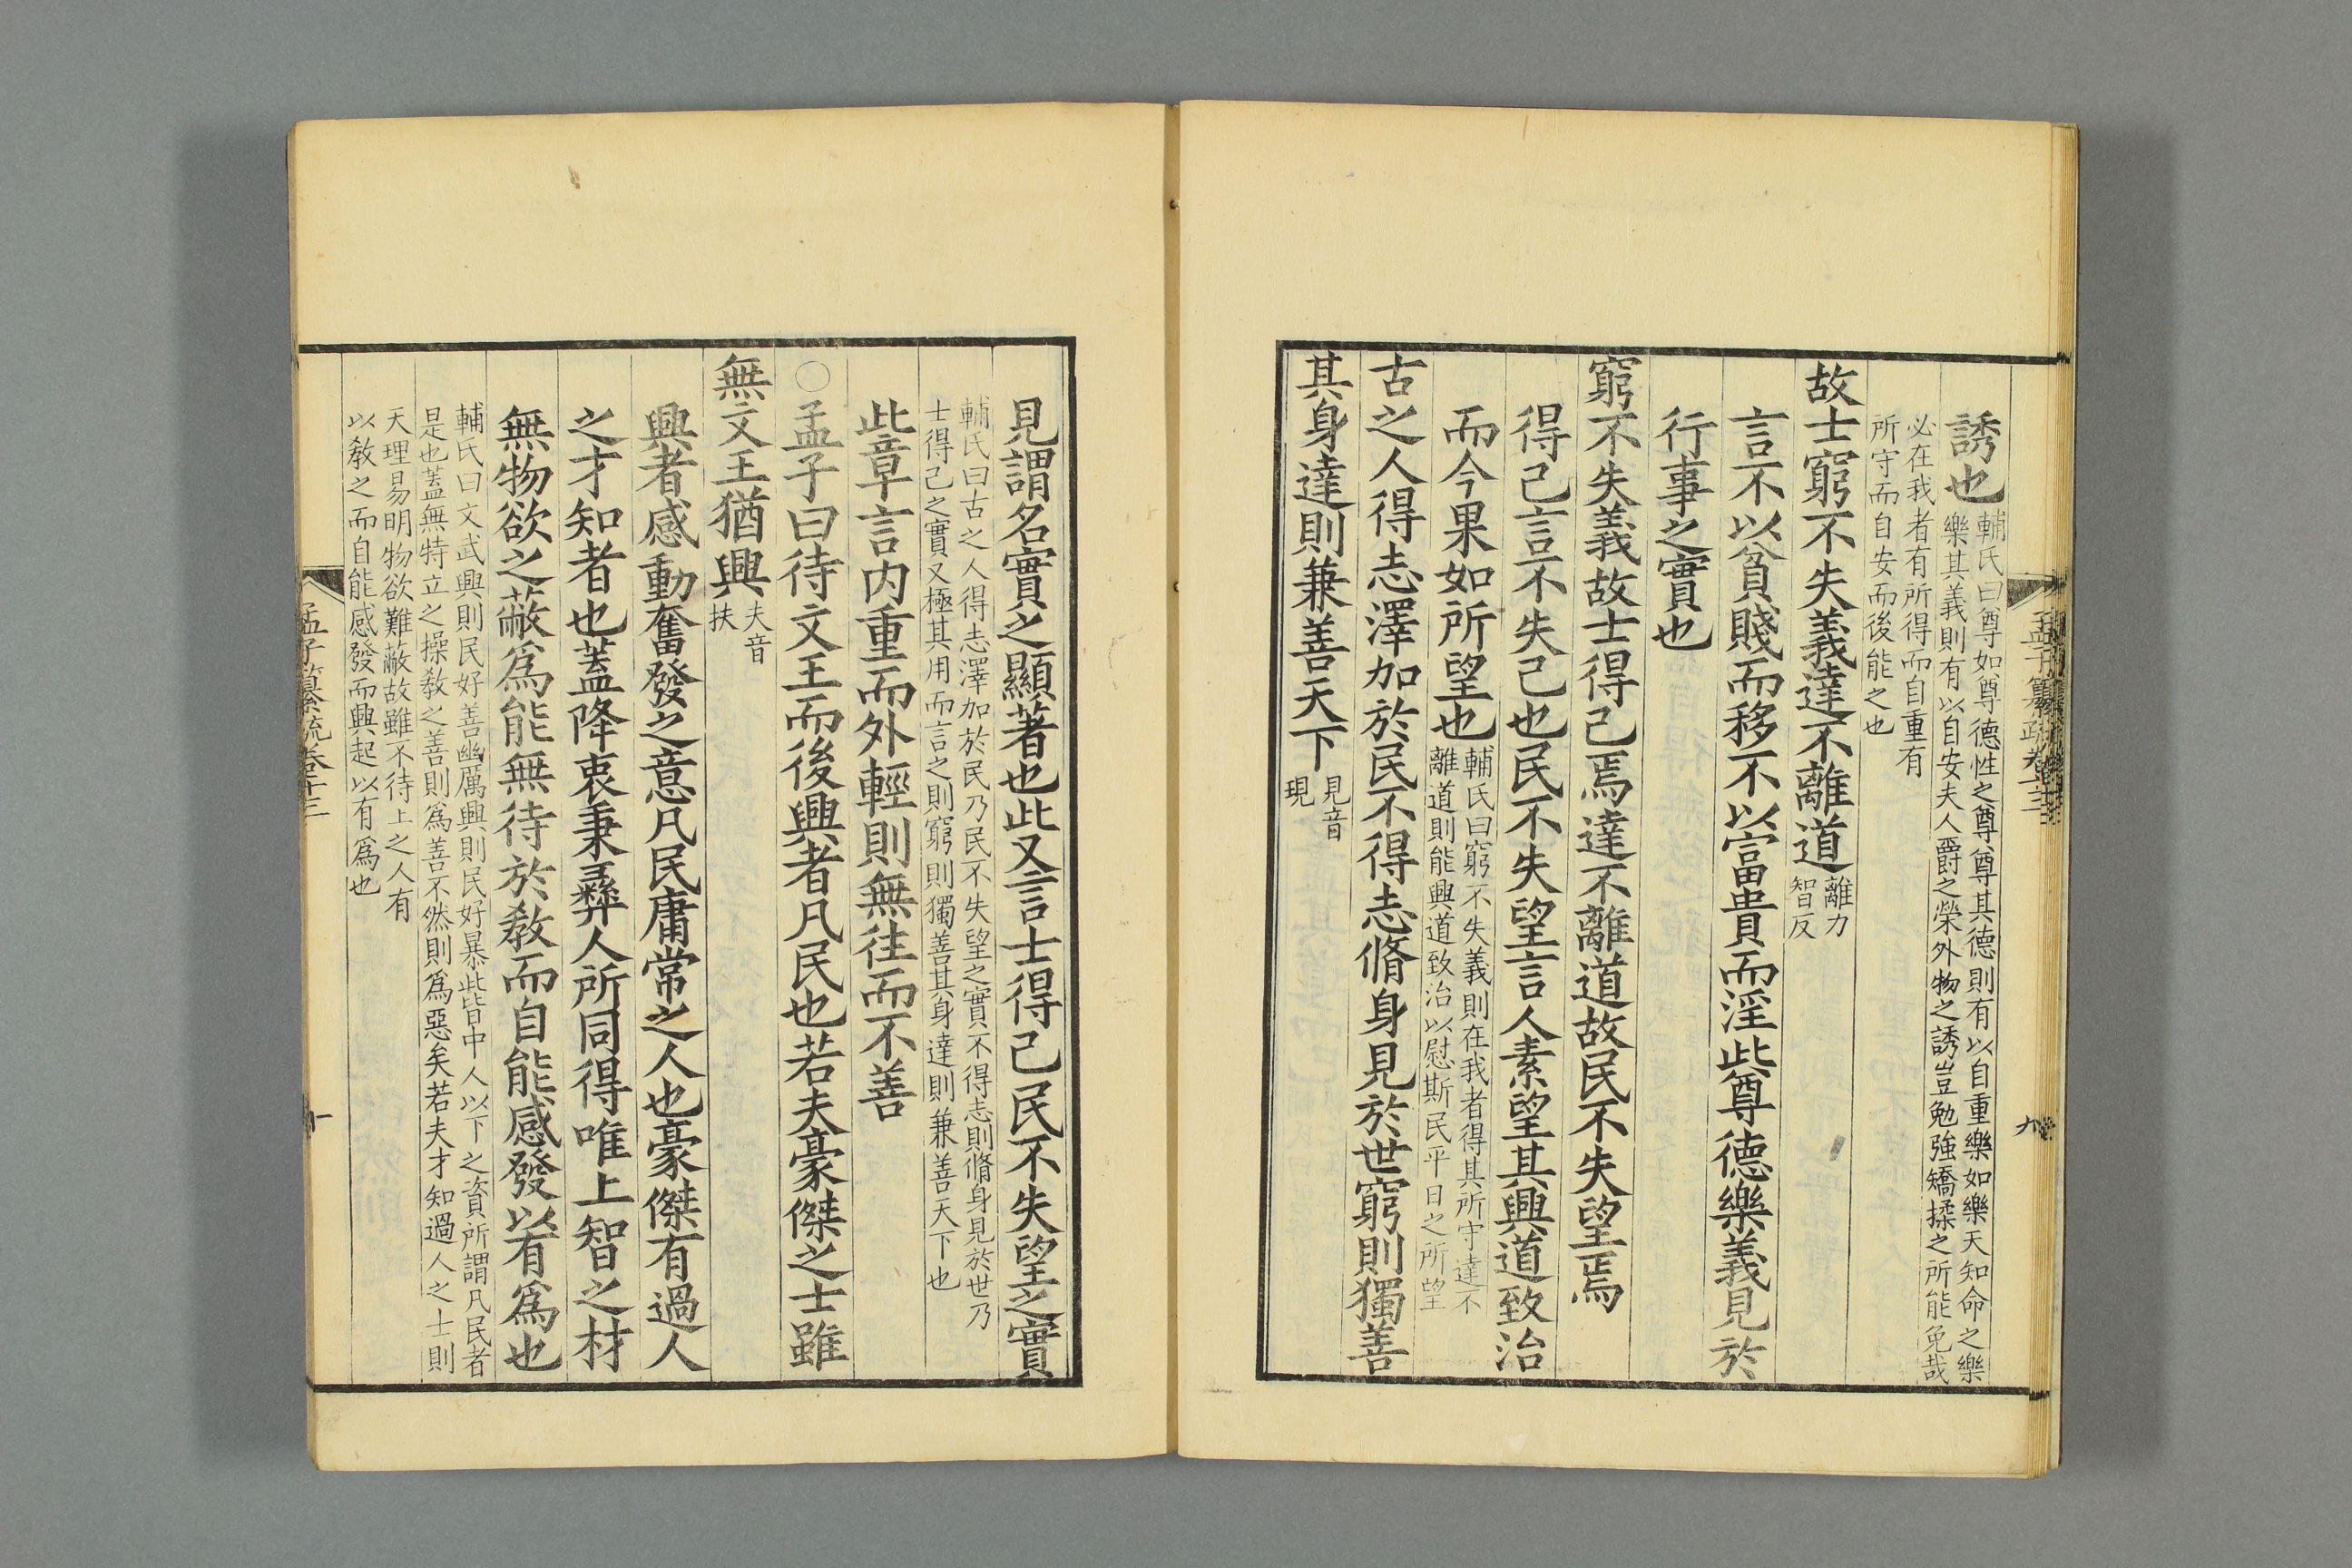 孟子纂疏卷十三
九
誘也
輔氏曰尊如尊德性之尊尊其德則有以自重樂如樂天知命之樂
樂其義則有以自安夫人爵之榮外物之誘豈勉強矯揉之所能免哉
必在我者有所得而自重有
所守而自安而後能之也
故士窮不失義達不離道
離力
智反
言不以貧賤而移不以富貴而淫此尊德樂義見於
行事之實也
窮不失義故士得己焉達不離道故民不失望焉
得己言不失己也民不失望言人素望其興道致治
而今果如所望也
輔氏曰窮不失義則在我者得其所守達不
離道則能興道致治以慰斯民平日之所望
古之人得志澤加於民不得志脩身見於世窮則獨善
其身達則兼善天下
見音
現
見謂名實之顯著也此又言士得己民不失望之實
輔氏曰古之人得志澤加於民乃民不失望之實不得志則脩身見於世乃
士得己之實又極其用而言之則窮則獨善其身達則兼善天下也
此章言内重而外輕則無往而不善
○孟子曰待文王而後興者凡民也若夫豪傑之士雖
無文王猶興
夫音
扶
興者感動奮發之意凡民庸常之人也豪傑有過人
之才知者也蓋降衷秉彝人所同得唯上智之材
無物欲之蔽爲能無待於教而自能感發以有爲也
輔氏曰文武興則民好善幽厲興則民好暴此皆中人以下之資所謂凡民者
是也蓋無特立之操教之善則爲善不然則爲惡矣若夫才知過人之士則
天理易明物欲難蔽故雖不待上之人有
以教之而自能感發而興起以有爲也
孟子纂疏卷十三